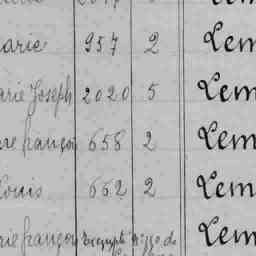 arie 957 2 Lem
arie Joseph 2020 5 Lem
re françois 658 2 Lem
Louis 662 2 Lem
rie françois Exempté Lem